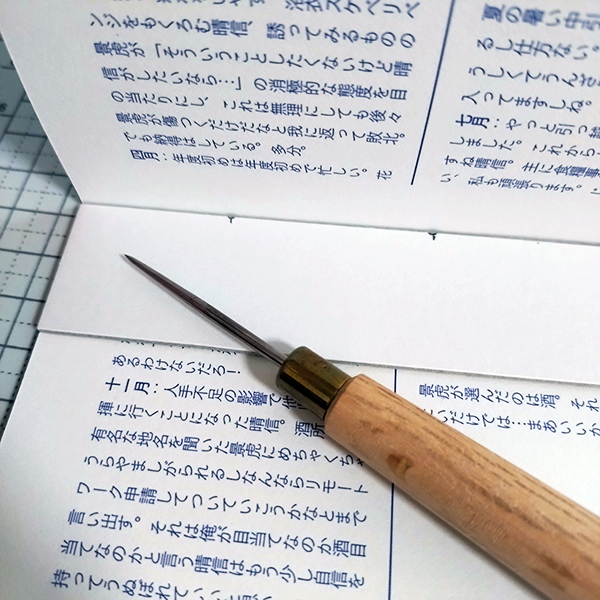 浴衣スケベリベ
ンジをもくろむ晴信　誘ってみるものの
景虎が「そういうことしたくないけど晴
信がしたいなら…」の消極的な態度を目
の当たりにし、これは無理にしても後々
景虎が傷つくだけだなと我に返って敗北。
でも納得はしている。多分。
四月：年度初めは年度初めで忙しい。花
夏の暑い中引
るし仕方ない。
うしくてうんざ
入ってますしね。
七月：やっと引っ
しました。これから
すね晴信。主に食糧事
い、私も頑張ります。
あるわけないだろー
十一月：人手不足の影響で
揮に行くことになった晴信。酒所
有名な地名を聞いた景虎にめちゃくち
うらやましがられるしなんならリモート
ワーク申請してついていこうかなとまで
言い出す。それは俺が目当てなのか酒目
当てなのかと言う晴信はもう少し自信を
持ってうぬぼれていい
景虎が選んだのは酒。それ
いだけでは…まあいいか